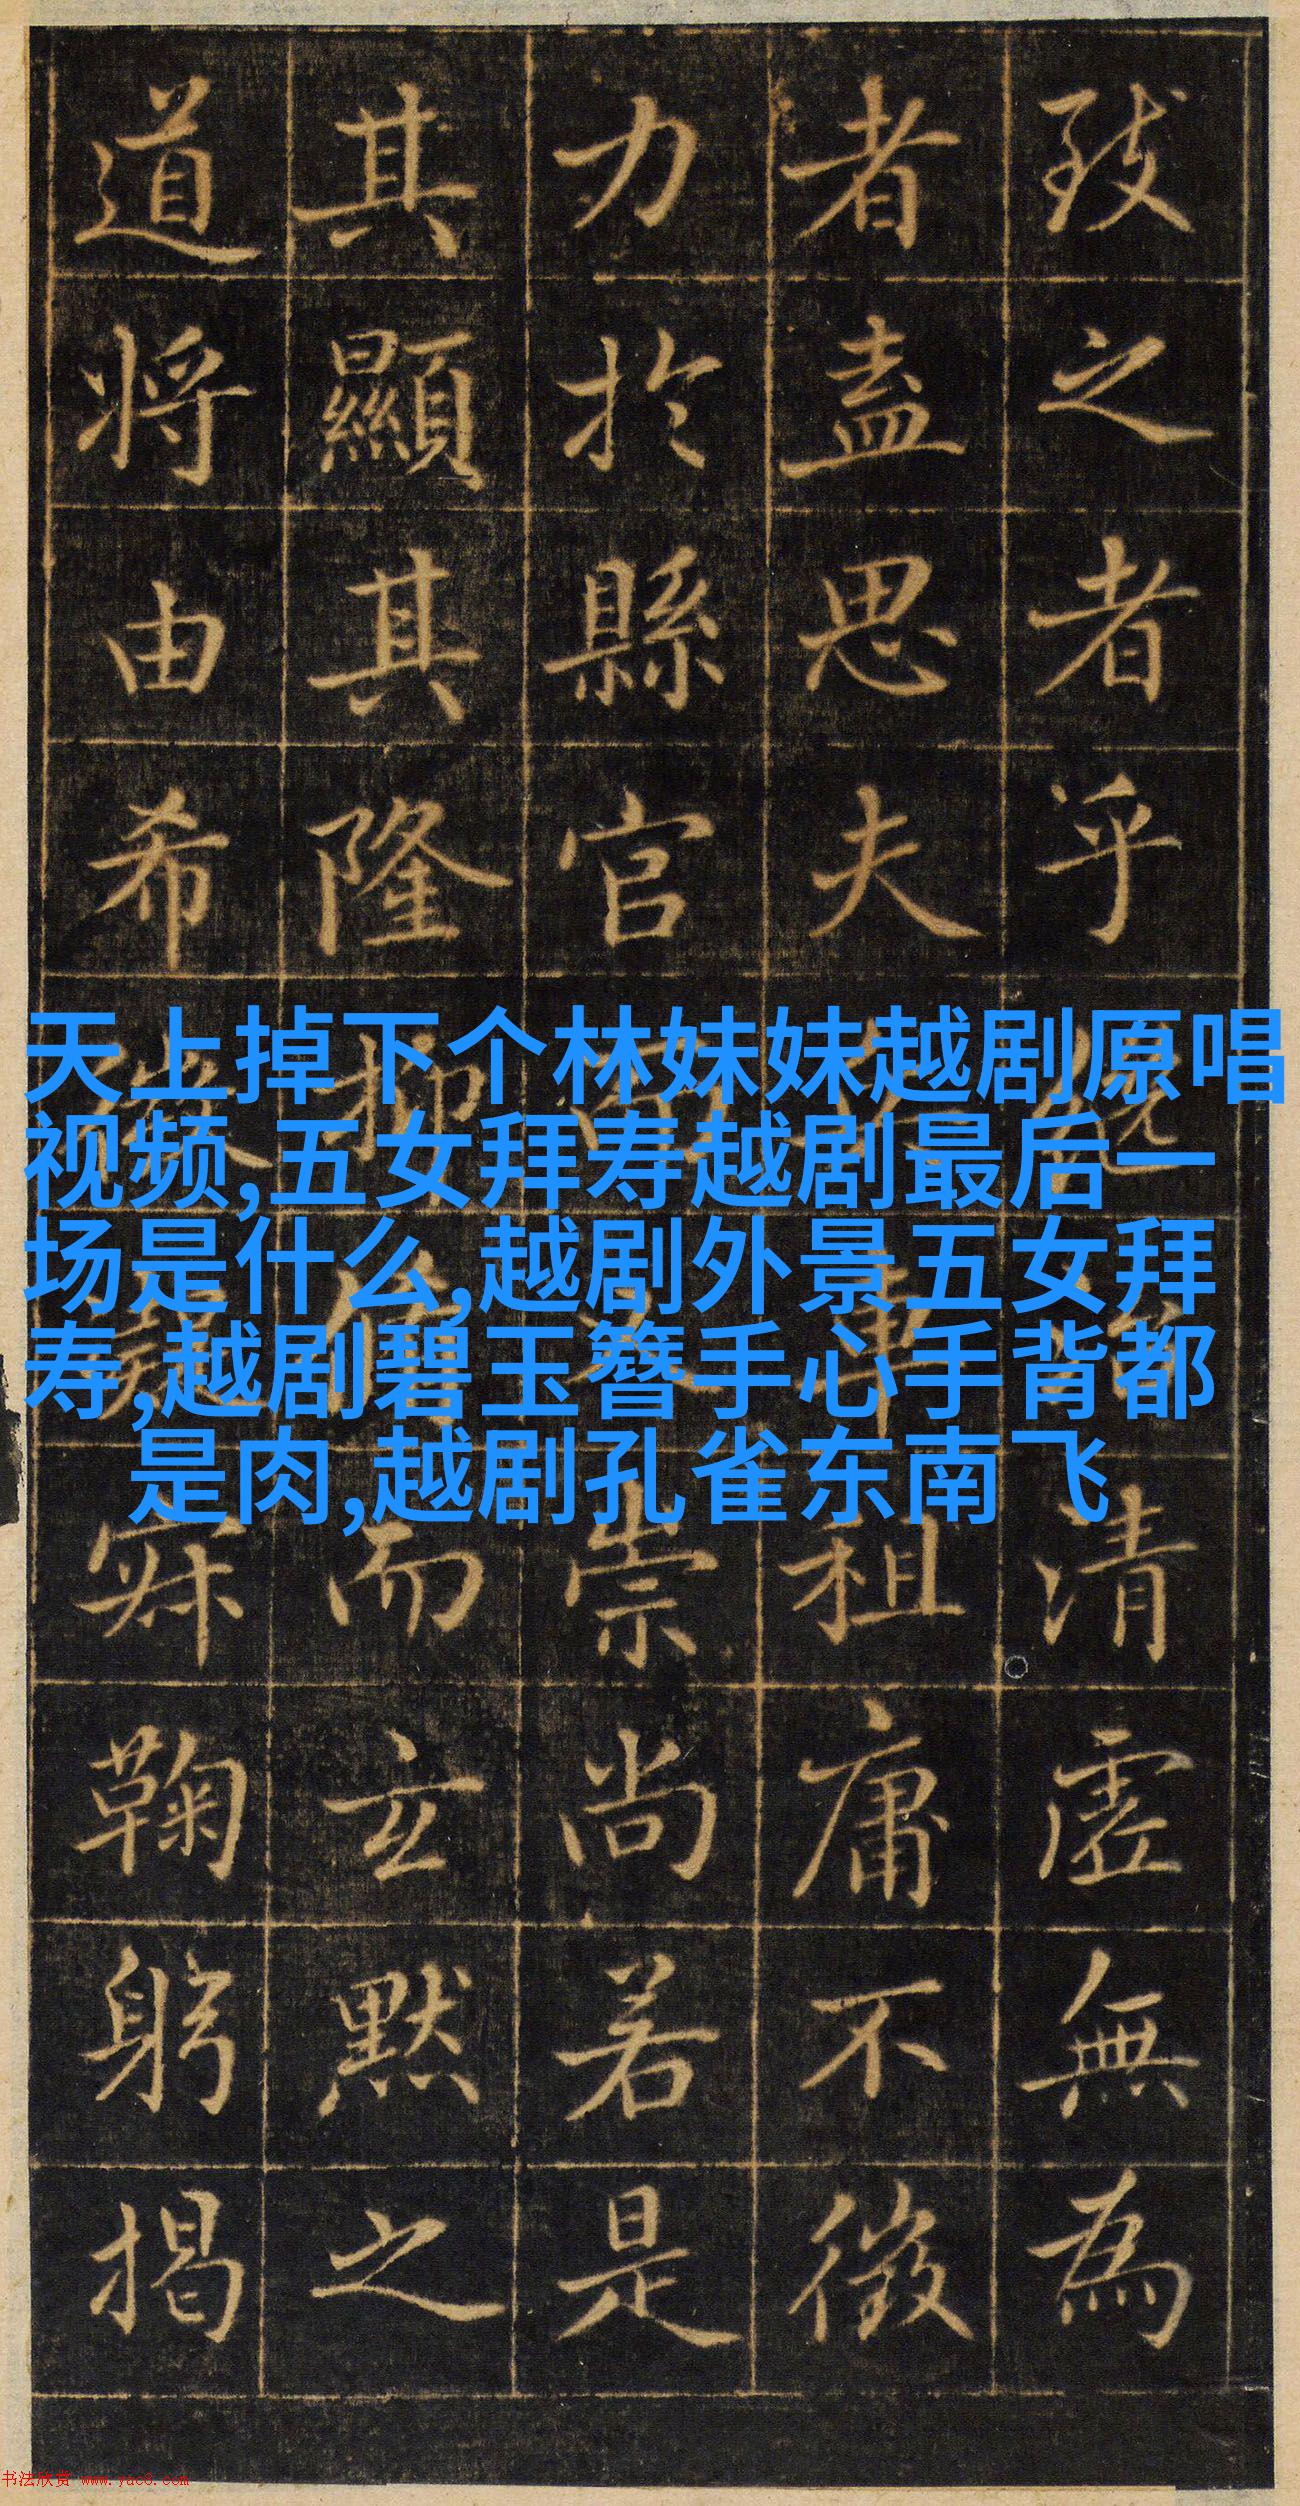 致之者乎清虛無為
者盡思夫租庸不徵
力於縣官崇尚若是
其顯其隆抑而玄默之
道將由希寂鞠躬揭
天上掉下个林妹妹越剧原唱
视频,五女拜寿越剧最后一
场是什么,越剧外景五女拜
寿,越剧碧玉簪手心手背都
是肉,越剧孔雀东南飞
书法欣赏 www.yac8.com